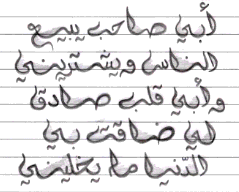 أبي صاحب يبيع
الناس ويشتريني
وأبي قلب صادق
لي ضاقت بي
الدنيا ما يخليني